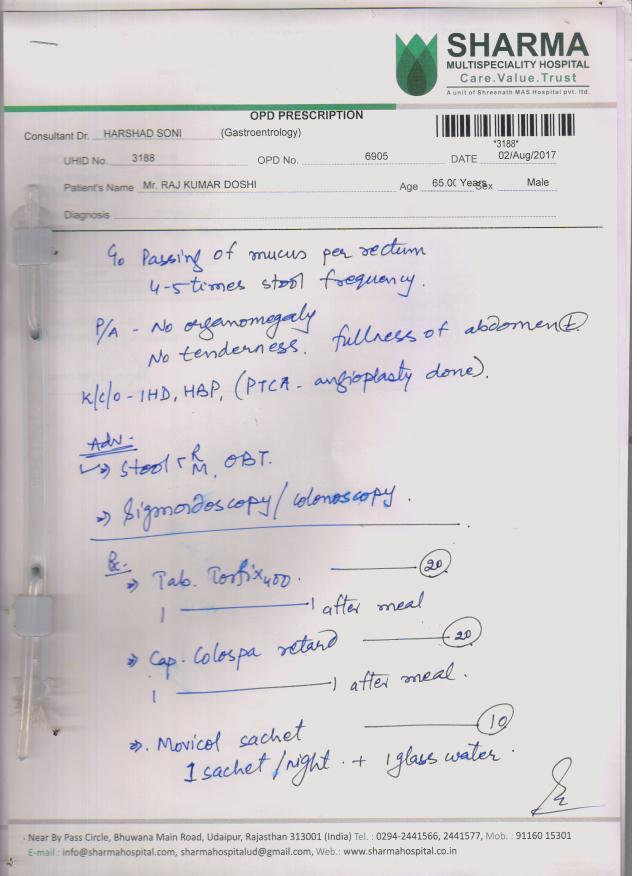 SHARMA
MULTISPECIALITY HOSPITAL
Care.Value.Trust
A unit of Shreenath MAS Hospital pvt. ltd.
OPD PRESCRIPTION
Consultant Dr. HARSHAD SONI (Gastroentrology)
*3188*
UHID No. 3188 OPD No. 6905 DATE 02/Aug/2017
Patient's Name Mr. RAJ KUMAR DOSHI Age 65.00 Years Sex Male
Diagnosis
C/o Passing of mucus per rectum
4-5 times stool frequency.
P/A - No organomegaly
No tenderness. fullness of abdomen +
K/c/o - IHD, HBP, (PTCA - angioplasty done).
Adv.
Stool R/M, OBT.
Sigmoidoscopy/colonoscopy.
Rx.
Tab. Torfix 400. 20
1 1 after meal
Cap. Colospa retard 20
1 1 after meal.
Movicol sachet 10
1 sachet/night. + 1 glass water.
Near By Pass Circle, Bhuwana Main Road, Udaipur, Rajasthan 313001 (India) Tel. : 0294-2441566, 2441577, Mob. : 91160 15301
E-mail : info@sharmahospital.com, sharmahospitalud@gmail.com, Web.: www.sharmahospital.co.in